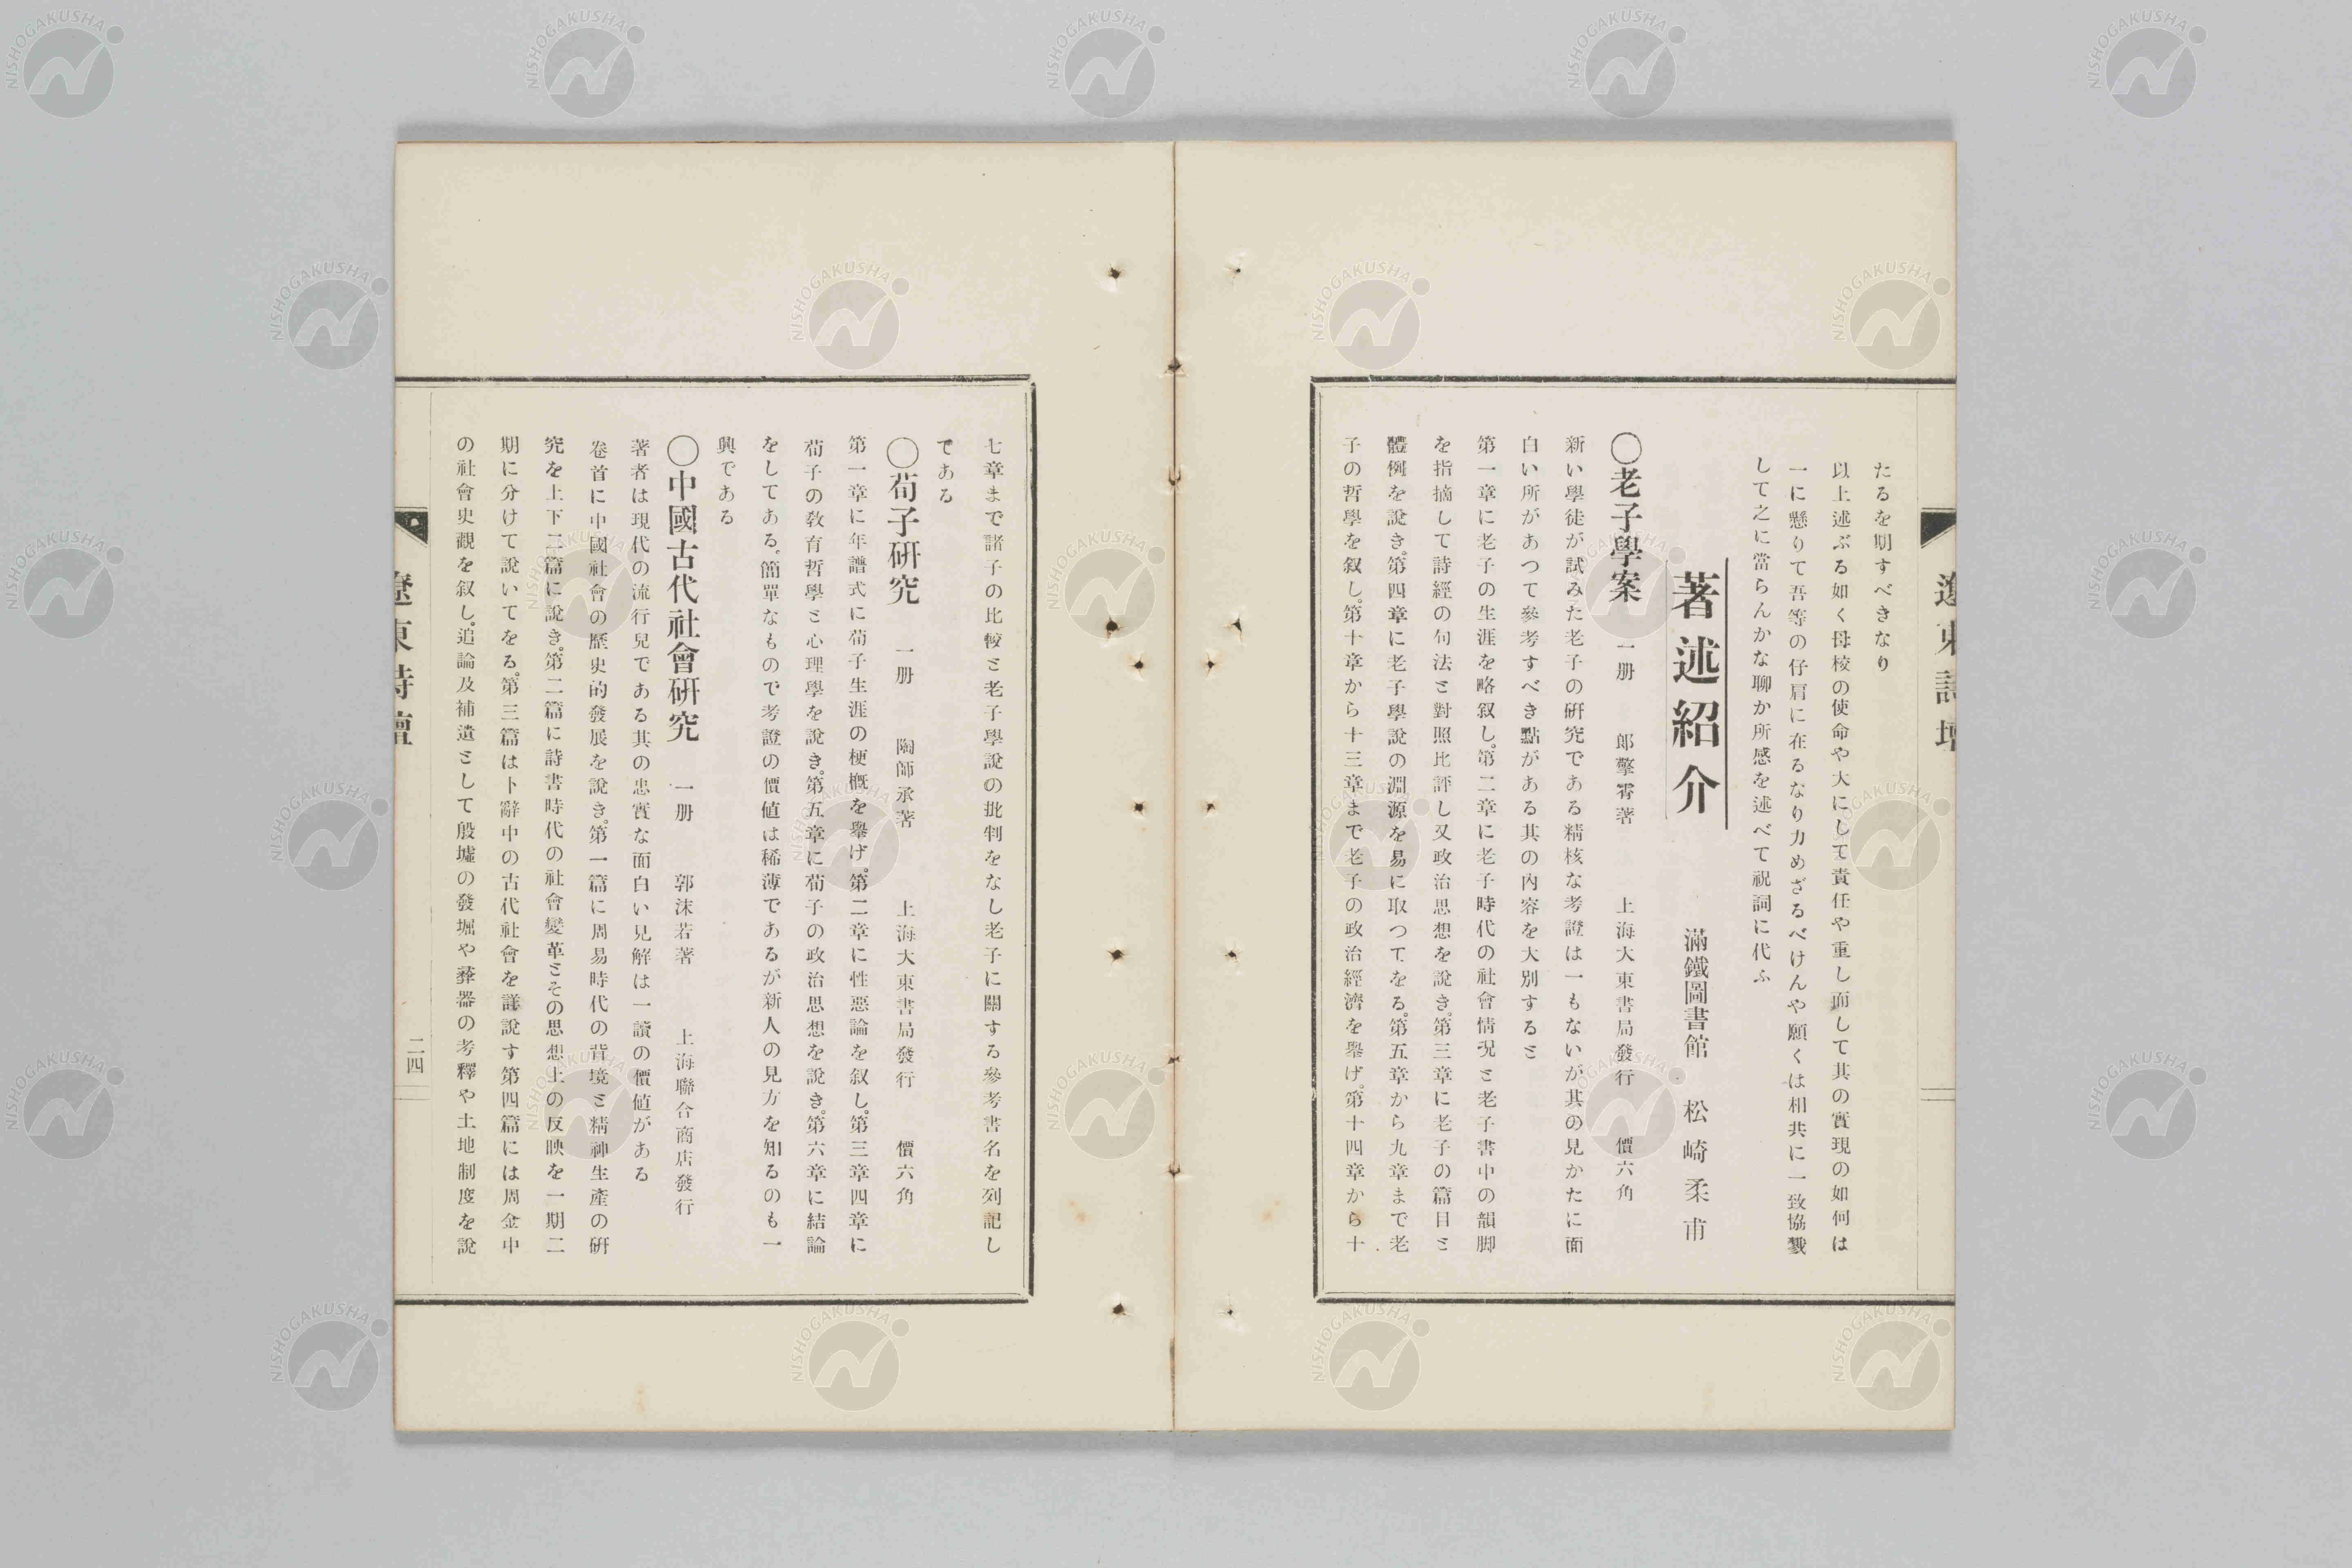 たるを期すべきなり
以上述ぶる如く母校の使命や大にして責任や重し而して其の實現の如何は
一に懸りて吾等の仔肩に在るなり力めざるべけんや願くは相共に一致協戮
して之に當らんかな聊か所感を述べて祝詞に代ふ
著述紹介
滿鐵圖書館 松崎柔甫
〇老子學案 一册 郎擎霄著 上海大東書局發行 價六角
新い學徒が試みた老子の硏究である精核な考證は一もないが其の見かたに面
白い所があつて參考すべき點がある其の内容を大別すると
第一章に老子の生涯を略叙し。第二章に老子時代の社會情況と老子書中の韻脚
を指摘して詩經の句法と對照比評し又政治思想を說き。第三章に老子の篇目と
體例を說き。第四章に老子學說の淵源を易に取つてをる。第五章から九章まで老
子の哲學を叙し。第十章から十三章まで老子の政治經濟を擧げ。第十四章から十
七章まで諸子の比較と老子學說の批判をなし老子に關する參考書名を列記し
である
〇荀子硏究 一册 陶師承著 上海大東書局發行 價六角
第一章に年譜式に荀子生涯の梗槪を擧げ。第二章に性惡論を叙し。第三章四章に
荀子の敎育哲學と心理學を說き。第五章に荀子の政治思想を說き。第六章に結論
をしてある。簡單なもので考證の價値は稀薄であるが新人の見方を知るのも一
興である
〇中國古代社會硏究 一册 郭沫若著 上海聯合商店發行
著者は現代の流行兒である其の忠實な面白い見解は一讀の價値がある
卷首に中國社會の歷史的發展を說き。第一篇に周易時代の背境と精神生產の硏
究を上下二篇に說き。第二篇に詩書時代の社會變革とその思想上の反映を一期二
期に分けて說いてをる。第三篇は卜辭中の古代社會を詳說す第四篇には周金中
の社會史觀を叙し。追論及補遺として殷墟の發堀や彝器の考釋や土地制度を說
遼東詩壇
二四